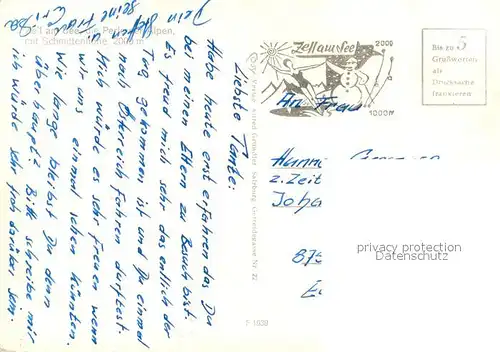 Zell am See mit Pen Alpen,
mit Schmittenhöhe, 2000 m
Liebste Tante.
Habe heute erst erfahren das Du
bei meinen Eltern zu Besuch bist.
Es freud mich sehr das endlich der
Tag gekommen ist und Du einmal
nach Östereich fahren durftest.
Mich würde es sehr freuen wenn
wir uns einmal sehen könnten.
Wie lange bleibst Du denn
überhaupt. Bitte schreibe mir
ich würde sehr froh darüber sein.
Dein Neffen
seine Frau
Zell am See
2000
1000 m
Bis zu 5
Grußworten
als
Drucksache
frankieren
An Frau
z. Zeit
Joha
875
privacy protection
Datenschutz
Salzburg, Getreidegasse Nr. 22
F 1630